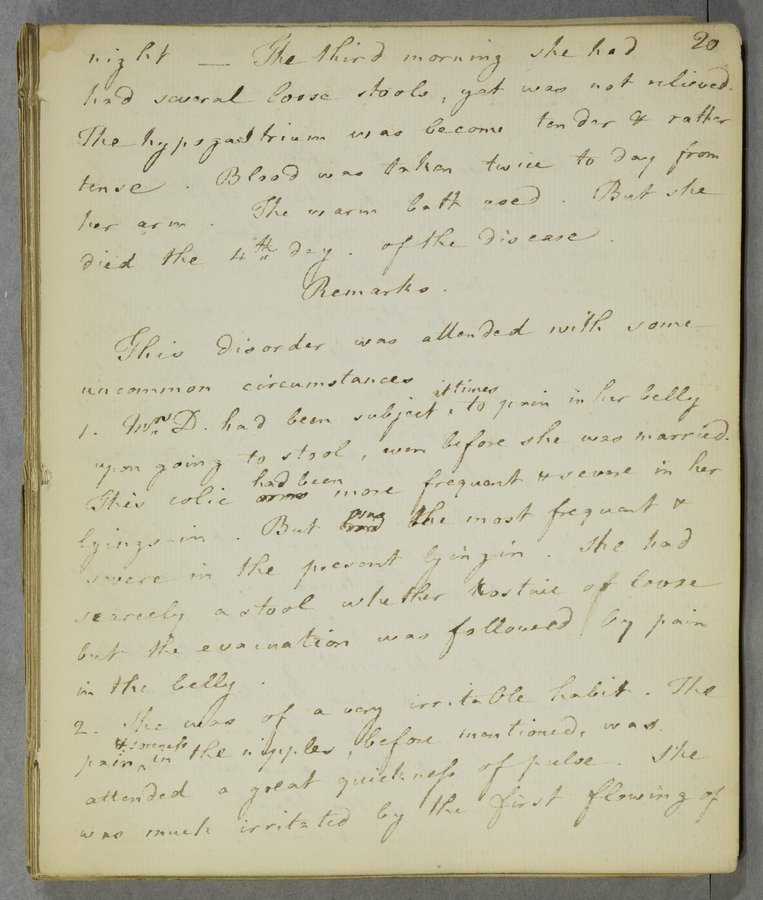 20
night — The third morning she had
had several loose stools, yet was not relieved.
The hypogastrium was become tender & rather
tense. Blood was taken twice to day from
her arm. The warm bath used. But she
died the 4th day. of the disease.
Remarks.
This disorder was attended with some
uncommon circumstances
1. Mrs D. had been subject, at times to pain in her belly
upon going to stool, even before she was married.
This colic had been more frequent & severe in her
lyings-in. But was the most frequent &
severe in the present lying in. She had
scarcely a stool whether costive or loose
but the evacuation was followed by pain
in the belly.
2. She was of a very irritable habit. The
pain & soreness in the nipples, before mentioned, was
attended a great quickness of pulse. She
was much irritated by the first flowing of